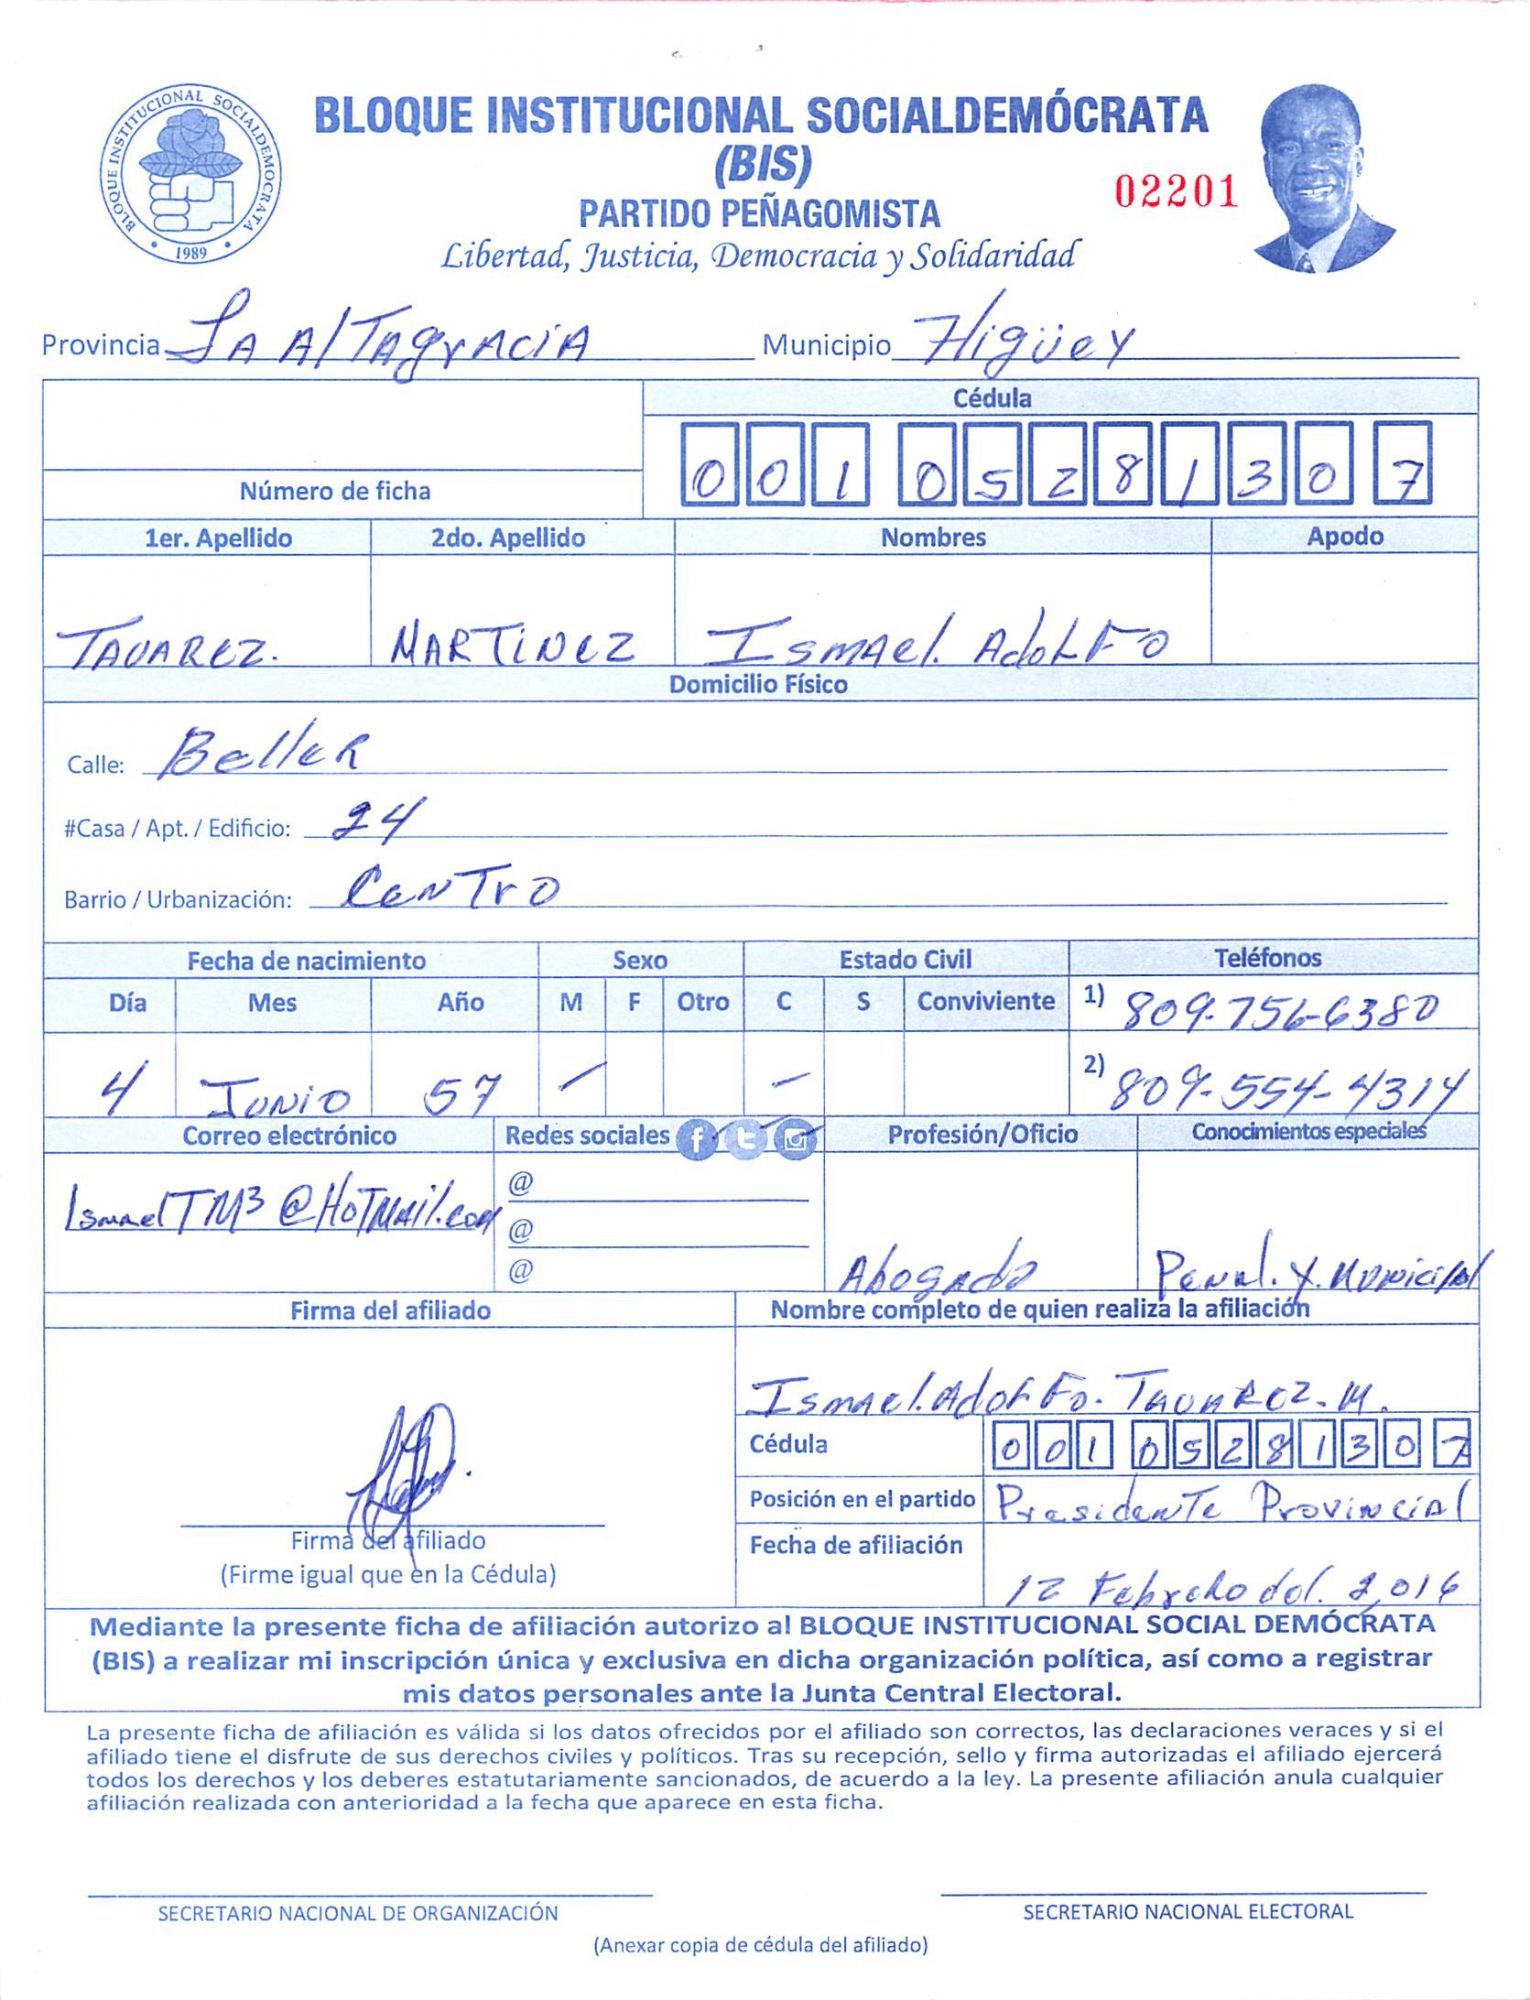 BLOQUE INSTITUCIONAL SOCIALDEMOCRATA
1989
BLOQUE INSTITUCIONAL SOCIALDEMÓCRATA
(BIS)
02201
PARTIDO PEÑAGOMISTA
Libertad, Justicia, Democracia y Solidaridad
Provincia La Altagracia Municipio Higüey
Cédula
001 0528130 7
Número de ficha
1er. Apellido 2do. Apellido Nombres Apodo
TAVAREZ. MARTINEZ Ismael. AdoLFo
Domicilio Físico
Calle: Beller
#Casa / Apt. / Edificio: 24
Barrio / Urbanización: Centro
Fecha de nacimiento Sexo Estado Civil Teléfonos
Día Mes Año M F Otro C S Conviviente 1) 809-756-6380
4 Junio 57 – – 2) 809-554-4314
Correo electrónico Redes sociales Profesión/Oficio Conocimientos especiales
IsmaelTM3@HotMail.com @
@
@
Abogado Penal. y. Municipal
Firma del afiliado Nombre completo de quien realiza la afiliación
Ismael. AdolFo. TavaRez. M.
Cédula 001 0528130 7
Posición en el partido Presidente Provincial
Fecha de afiliación 12 Febrero del. 2,016
Firma del afiliado
(Firme igual que en la Cédula)
Mediante la presente ficha de afiliación autorizo al BLOQUE INSTITUCIONAL SOCIAL DEMÓCRATA
(BIS) a realizar mi inscripción única y exclusiva en dicha organización política, así como a registrar
mis datos personales ante la Junta Central Electoral.
La presente ficha de afiliación es válida si los datos ofrecidos por el afiliado son correctos, las declaraciones veraces y si el
afiliado tiene el disfrute de sus derechos civiles y políticos. Tras su recepción, sello y firma autorizadas el afiliado ejercerá
todos los derechos y los deberes estatutariamente sancionados, de acuerdo a la ley. La presente afiliación anula cualquier
afiliación realizada con anterioridad a la fecha que aparece en esta ficha.
SECRETARIO NACIONAL DE ORGANIZACIÓN SECRETARIO NACIONAL ELECTORAL
(Anexar copia de cédula del afiliado)